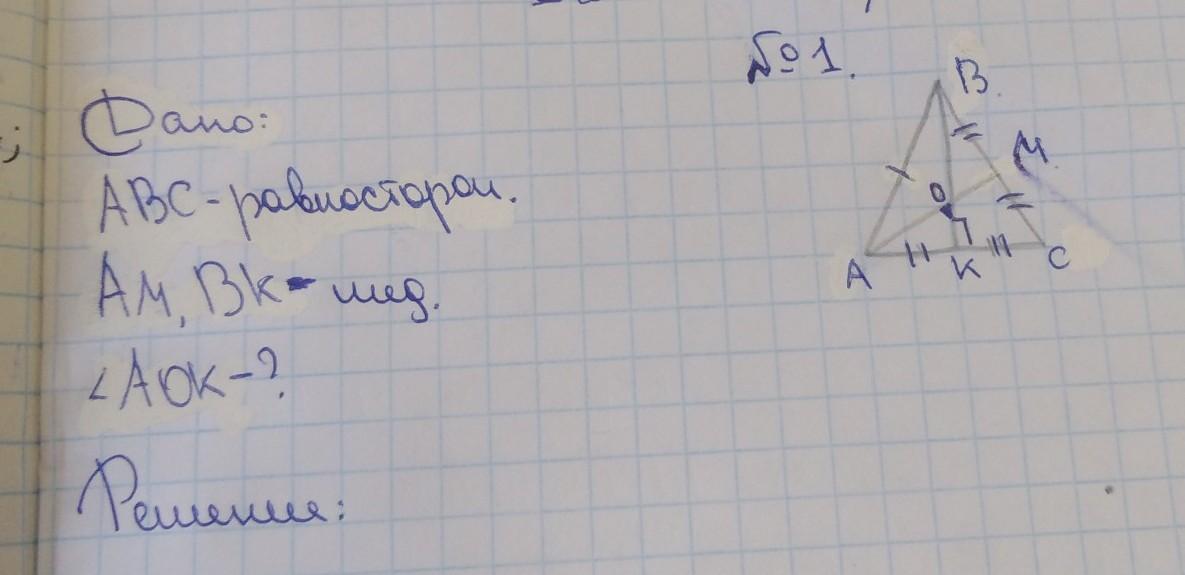 №1.
Дано:
B
ABC-равносторон.
M
O
AM, BK-мед.
A
K
C
∠AOK-?
Решение: